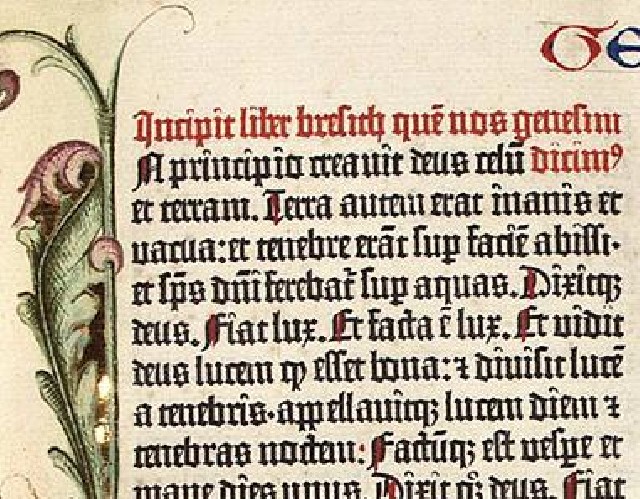 Ge
Incipit liber bresith quē nos genesim
N principio creauit deus celū dicimꝰ
et terram. Terra autem erat inanis et
uacua: et tenebre erāt sup faciē abissi·
et sp̄s dn̄i ferebat̄ sup aquas. Dixitqꝫ
deus. Fiat lux. Et facta ē lux. Et uidit
deus lucem ꝙ esset bona: ⁊ diuisit lucē
a tenebris·appellauitqꝫ lucem diem ⁊
tenebras noctem: Factūqꝫ est uespe et
mane dies unus. Dixit qꝫ deus. Fiat